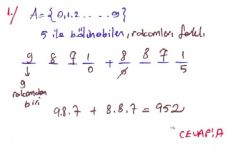 1./ A = {0,1,2.....9}
5 ile bölünebilen, rakamları farklı
9 8 7 1 + 8 8 7 1
0 0 5
↓
9
rakamdan
biri
9.8.7 + 8.8.7 = 952
CEVAP:A